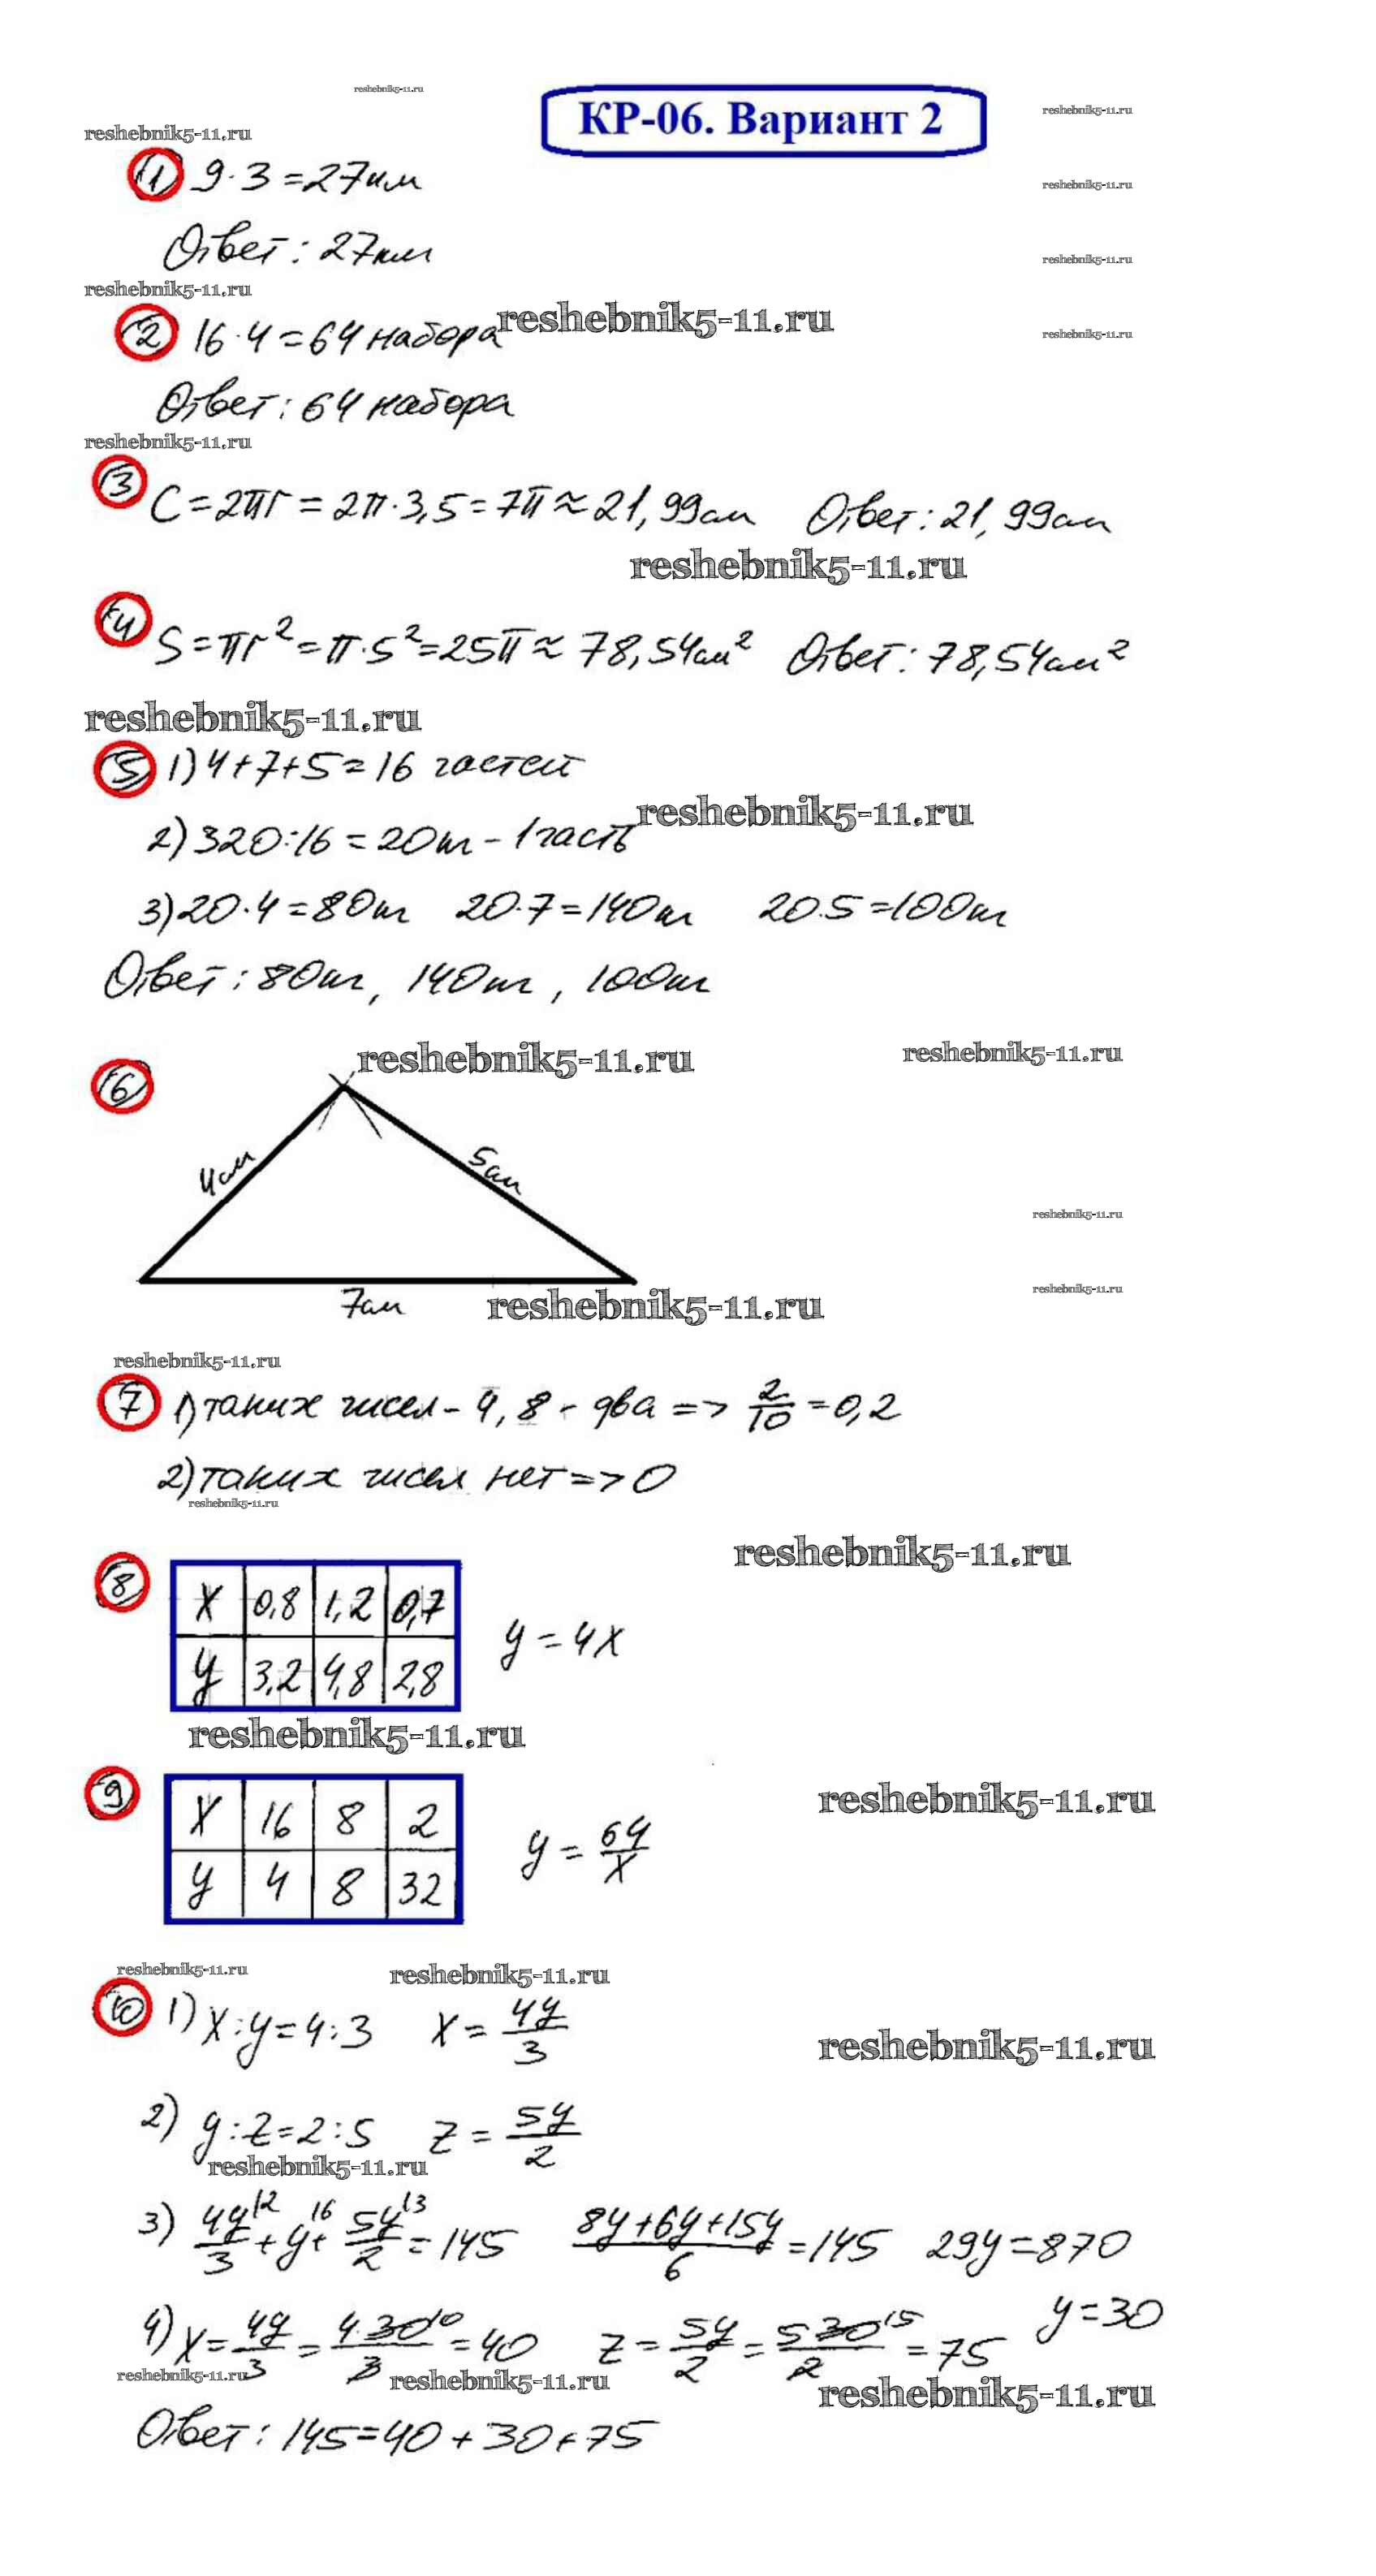 reshebnik5-11.ru
КР-06. Вариант 2
reshebnik5-11.ru
reshebnik5-11.ru
1) 9·3=27км
reshebnik5-11.ru
Ответ: 27км
reshebnik5-11.ru
reshebnik5-11.ru
2) 16·4=64 набора
reshebnik5-11.ru
reshebnik5-11.ru
Ответ: 64 набора
reshebnik5-11.ru
3) C=2πr=2π·3,5=7π≈21,99см Ответ: 21,99см
reshebnik5-11.ru
4) S=πr²=π·5²=25π≈78,54см² Ответ: 78,54см²
reshebnik5-11.ru
5) 1) 4+7+5=16 частей
reshebnik5-11.ru
2) 320:16=20т - 1 часть
3) 20·4=80т 20·7=140т 20·5=100т
Ответ: 80т, 140т, 100т
reshebnik5-11.ru reshebnik5-11.ru
6)
4см 5см
reshebnik5-11.ru
reshebnik5-11.ru
7см reshebnik5-11.ru
reshebnik5-11.ru
7) 1) таких чисел - 4, 8 - два => 2/10 = 0,2
2) таких чисел нет => 0
reshebnik5-11.ru
reshebnik5-11.ru
8) x 0,8 1,2 0,7
y=4x
y 3,2 4,8 2,8
reshebnik5-11.ru
9) x 16 8 2
reshebnik5-11.ru
y=64/x
y 4 8 32
reshebnik5-11.ru reshebnik5-11.ru
10) 1) x:y=4:3 x=4y/3
reshebnik5-11.ru
2) y:z=2:5 z=5y/2
reshebnik5-11.ru
3) 4y/3 |2 + y |6 + 5y/2 |3 = 145 (8y+6y+15y)/6 = 145 29y=870
y=30
4) x=4y/3=4·30/3 10=40 z=5y/2=5·30/2 15=75
reshebnik5-11.ru reshebnik5-11.ru reshebnik5-11.ru
Ответ: 145=40+30+75